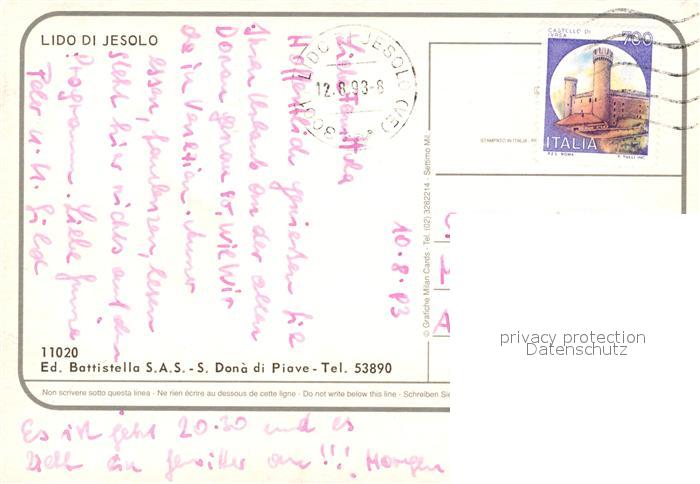 LIDO DI JESOLO
Hoffentlich genießen Sie
Ihren Urlaub an der alten
Donau genau so, wie wir
da in Venetien.
essen, faulenzen, lesen
steht hier nichts auf dem
Programm. Liebe Grüße
10.8.93
11020
Ed. Battistella S.A.S. - S. Donà di Piave - Tel. 53890
Non scrivere sotto questa linea - Ne rien écrire au dessous de cette ligne - Do not write below this line - Schreiben Sie
Es ist jetzt 20.30 und es
zieht ein Gewitter an!!! Morgen
© Grafiche Milan Cards - Tel. (02) 3282214 - Settimo Mil.
30017 LIDO JESOLO (VE)
12.8.93-8
STAMPATO IN ITALIA
CASTELLO DI
IVREA
700
ITALIA
I.P.Z.S. ROMA
privacy protection
Datenschutz